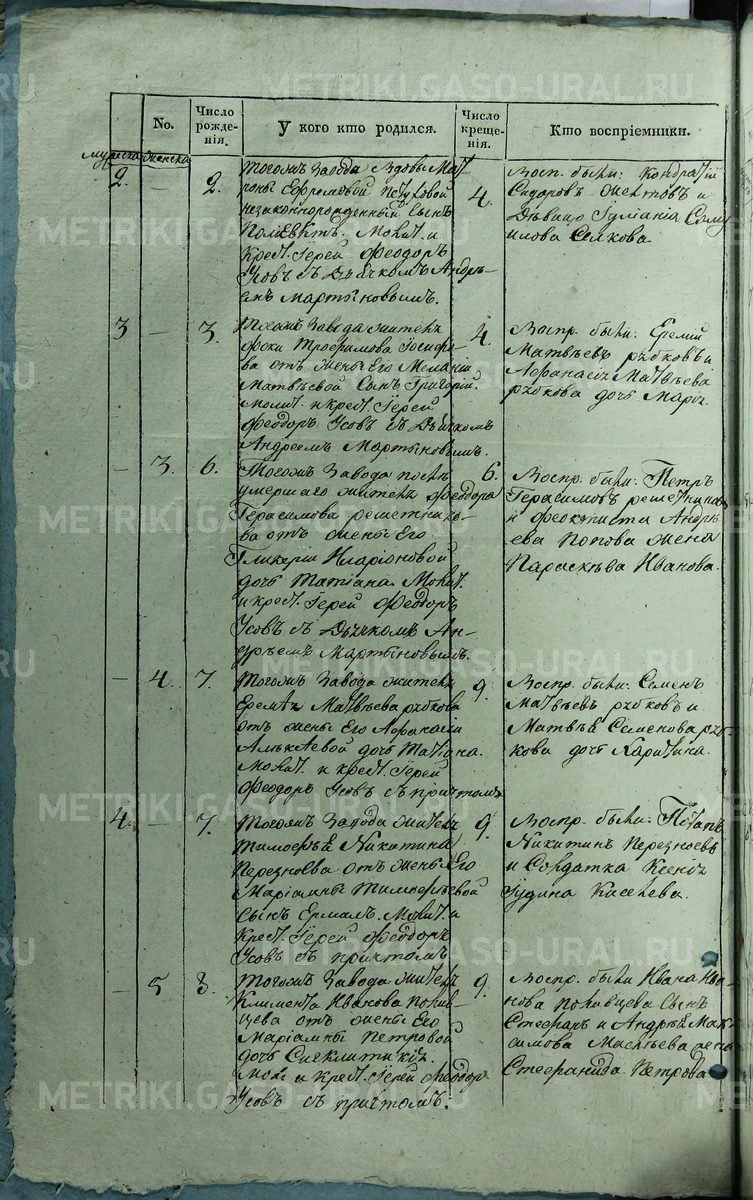 No.
Число рожде-нія.
У кого кто родился.
Число креще-нія.
Кто воспріемники.
мужска женска
2. — 2. 4.
Тогожъ Завода вдовы Мат
роны Ефремовой
незаконнорожденный Сынъ
Поліевктъ. Молит. и
Крест. Іерей Феодоръ
Усовъ съ Дьячкомъ Андрѣ-
емъ Мартыновымъ.
Восп. были: Кондратій
Сидоровъ и
Дѣвица Іуліанія Саму
илова
3 — 3. 4.
Тогожъ Завода житель
Фоки Трофимова Іосифо-
ва отъ жены Его Меланіи
Матвѣевой Сынъ Григорій.
Молит. и крест. Іерей
Феодоръ Усовъ съ Дьячкомъ
Андреемъ Мартыновымъ.
Воспр. были:
Матвѣевъ рябковъ и
Афанасія Матвѣева
рябкова дочь Марія.
— 3. 6. 6.
Тогожъ Завода послѣ
умершаго жителя Феодора
Герасимова решетнико-
ва отъ жены Его
Гликеріи Иларіоновой
дочь Татіана. Молит.
и крест. Іерей Феодоръ
Усовъ съ Дьячкомъ Ан-
дреемъ Мартыновымъ.
Воспр. были: Петръ
Герасимовъ решетниковъ
и Феоктиста Андрѣ
ева Попова жена
Параскева Иванова.
— 4. 7. 9.
Тогожъ Завода житель
Еремѣя Матвѣева рябкова
отъ жены Его Афанасіи
дочь Татіана.
Молит. и крест. Іерей
Феодоръ Усовъ съ причтомъ
Воспр. были: Семенъ
Матвѣевъ рябковъ и
Матвѣя Семенова ряб-
кова дочь Харитина.
4. — 7. 9.
Тогожъ Завода житель
Тимофѣя Никитина
Перезнѣева отъ жены Его
Маріамны Тимофѣевой
Сынъ Ермалъ. Молит. и
Крест. Іерей Феодоръ
Усовъ съ причтомъ
Воспр. были: Потапъ
Никитинъ
и Солдатка Ксенія
Іудина Киселева.
— 5 8. 9.
Тогожъ Завода житель
Климента Иванова Поливцева отъ жены Его
Маріамны Петровой
дочь Синклитикія.
Моли и Крест. Іерей Феодоръ
Усовъ съ причтомъ.
Воспр. были Ивана Ива-
нова Поливцева Сынъ
Стефанъ и Андрѣя Мак-
симова жена
Стефанида Петрова
METRIKI.GASO-URAL.RU